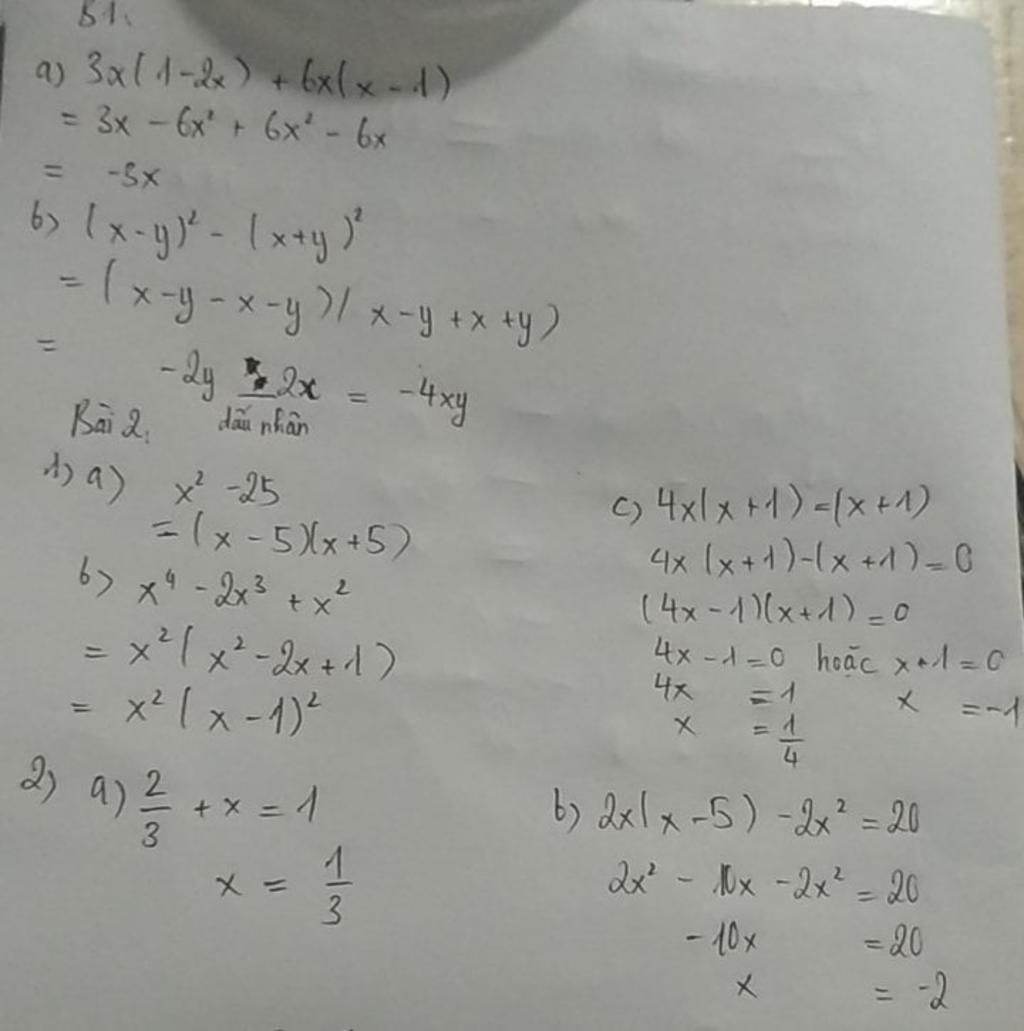 B1.
a) 3x(1-2x) + 6x(x-1)
= 3x - 6x² + 6x² - 6x
= -3x
b) (x-y)² - (x+y)²
= (x-y-x-y)(x-y+x+y)
=
-2y . 2x = -4xy
dấu nhân
Bài 2:
1) a) x² - 25
= (x-5)(x+5)
b) x⁴ - 2x³ + x²
= x²(x² - 2x + 1)
= x²(x-1)²
c) 4x(x+1) = (x+1)
4x(x+1) - (x+1) = 0
(4x-1)(x+1) = 0
4x-1=0 hoặc x+1=0
4x = 1 x = -1
x = 1/4
2) a) 2/3 + x = 1
x = 1/3
b) 2x(x-5) - 2x² = 20
2x² - 10x - 2x² = 20
-10x = 20
x = -2